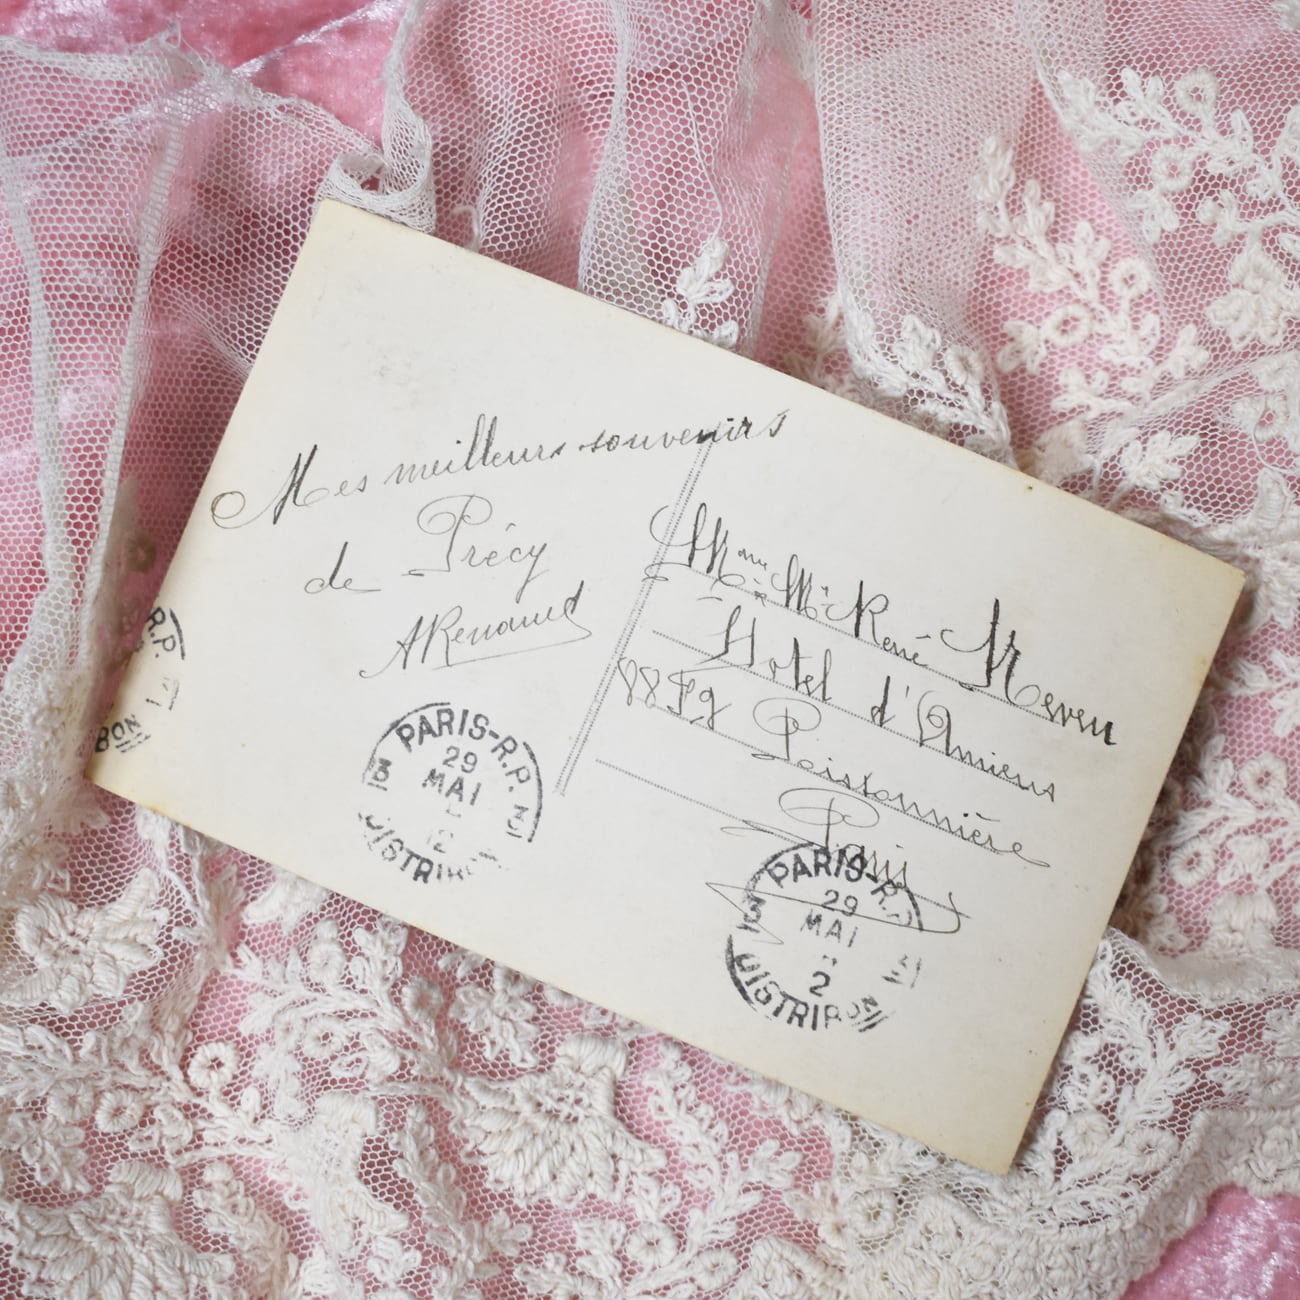 Mes meilleurs souvenirs
de Précy
ARenaud
Mme & Mr René Neveu
Hotel d'Amiens
88 Fg Poissonnière
Paris
PARIS-R.P.
29
MAI
12
3 3
DISTRIB
PARIS-R.P.
29
MAI
2
3
DISTRIBON
R.P.
BON